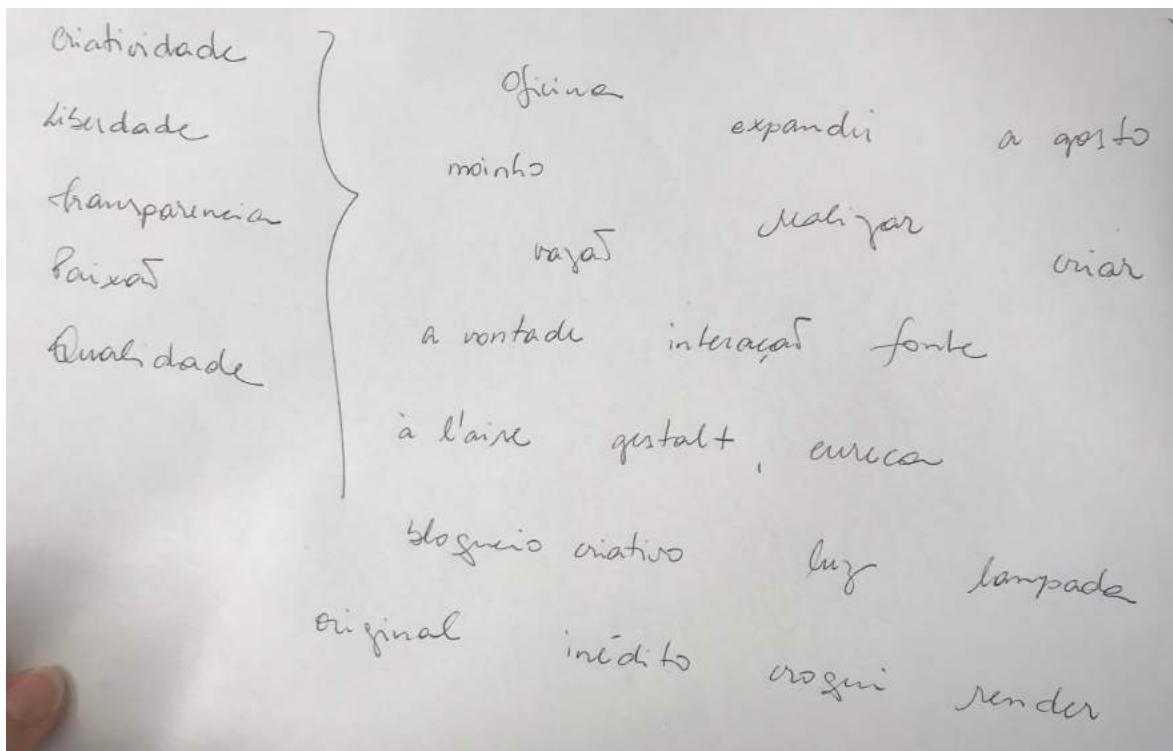 criatividade
Liberdade
transparencia
Paixão
Qualidade
Oficina
expandir a gosto
moinho
realizar
vazão criar
a vontade interação fonte
à l'aise gestalt, eureca
bloqueio criativo luz lampada
original inédito croqui render